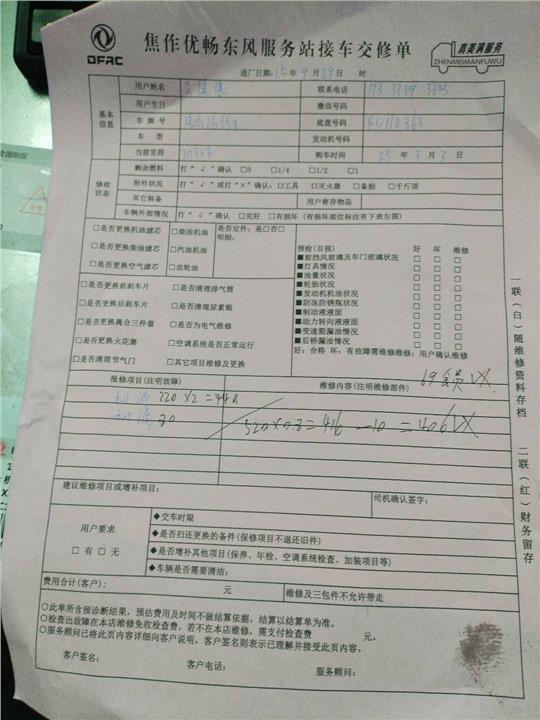 DFAC
焦作优畅东风服务站接车交修单
真美满服务
ZHENMEIMANFUWU
进厂日期:25年9月29日 时
基本信息
用户姓名 联系电话
用户生日 微信号码
车牌号 底盘号码
车型 发动机号码
当前里程 购车时间 25年3月3日
修前状态
剩余燃料 打“√”确认 □0 □1/4 □1/2 □1
附件状况 打“√”或打“×”确认:□工具 □灭火器 □备胎 □千斤顶
其它装备 用户寄存物品
车辆外部情况 打“√”确认 □完好 □有损坏(有损坏部位标注有下表左图)
□是否更换机油滤芯 □柴油机油 是否定件:是□否□
明细:
□是否更换柴油滤芯 □汽油机油
□是否更换空气滤芯 □齿轮油
预检(目视) 好 坏 维修
■前挡风玻璃及车门玻璃状况 □ □ □
■灯具情况 □ □ □
■油量状况 □ □ □
■轮胎状况 □ □ □
■发动机机油状况 □ □ □
■防冻防锈瓶状况 □ □ □
■制动液液面 □ □ □
■动力转向液液面 □ □ □
■变速箱漏油情况 □ □ □
■后桥漏油情况 □ □ □
好:合格 坏:有故障需维修维修:用户确认维修
□是否更换前刹车片 □是否清理排气筒
□是否更换后刹车片 □是否清理尿素箱
□是否更换离合三件套 □是否为电气维修
□是否更换火花塞 □空调系统是否正常运行
□是否清理节气门 □其它项目维修及更换
报修项目(注明故障) 维修内容(注明维修部件)
机油 220×2=440
机滤 80
520×0.8=416-10=406
建议维修项目或增补项目:
司机确认签字:
用户要求
□有 □无
◆交车时限
◆是否归还更换的备件(保修项目不退还旧件)
◆是否增补其他项目(保养、年检、空调系统检查、加装项目等)
◆车辆是否需要清洁:
费用合计(客户): 元 维修及三包件不允许带走
○此单所含预诊断结果,预估费用及时间不做结算依据,结算以结算单为准。
○检查出故障在本店维修免收检查费,若不在本店维修,需支付检查费 元。
○服务顾问已将此页内容详细向客户说明,客户签名则表示已理解并接受此页内容。
客户签名: 客户电话: 服务顾问:
一联(白)随维修资料存档
二联(红)财务留存